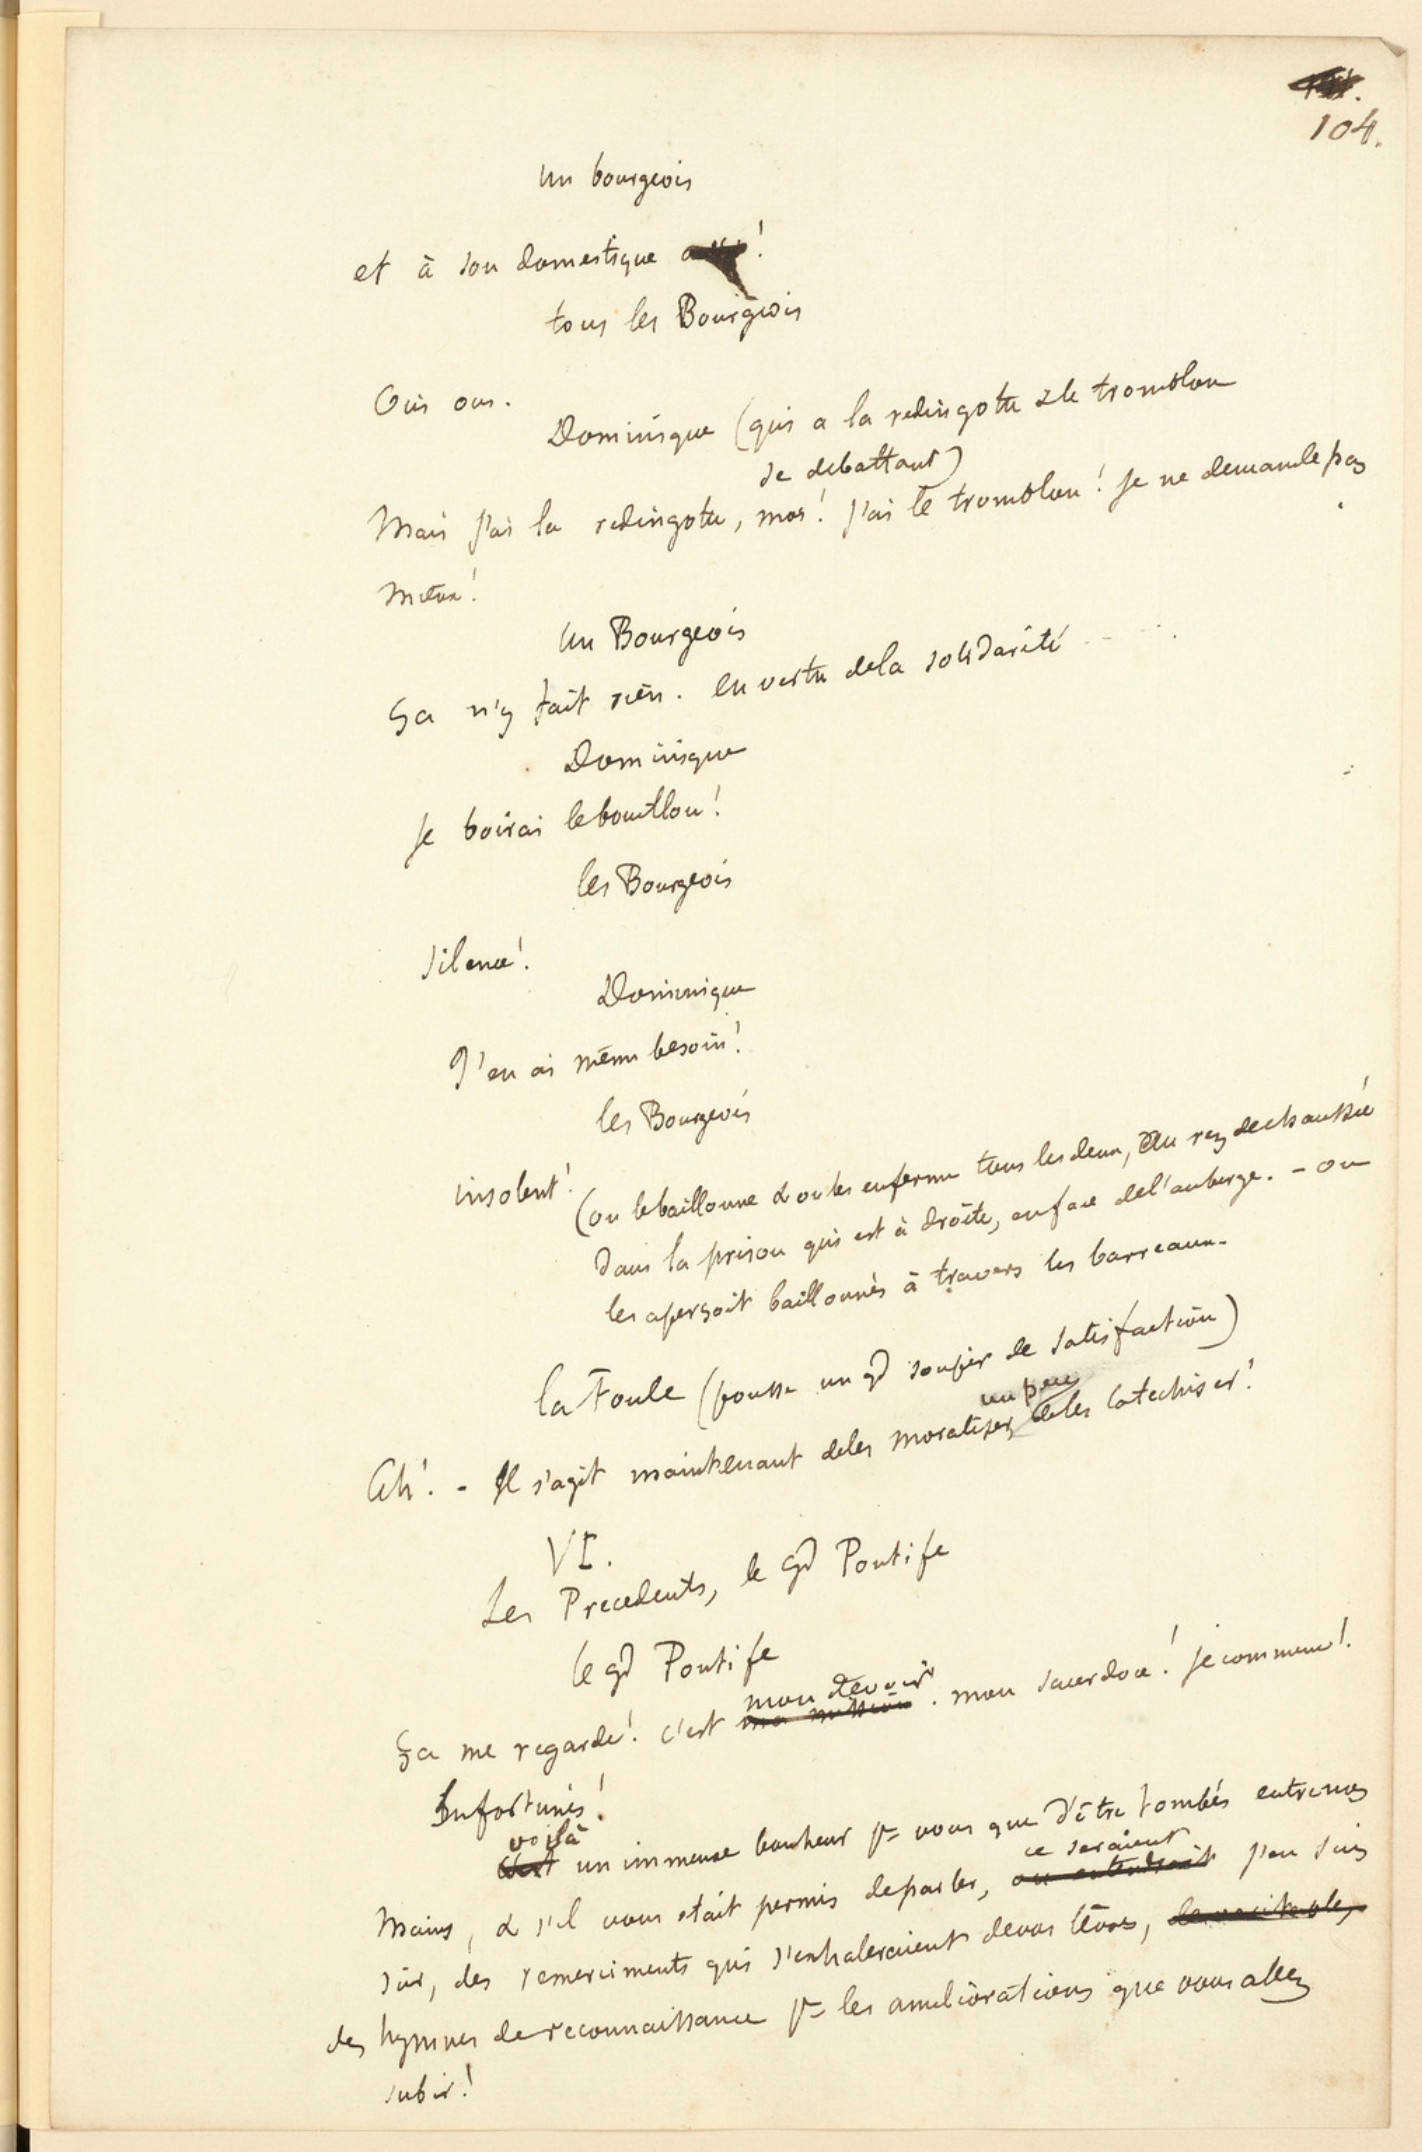 104.
Un bourgeois
et à son domestique !
tous les Bourgeois
Oui oui.
Dominique (qui a la redingote & le tromblon
se debattant)
Mais j'ai la redingote, moi! j'ai le tromblon! je ne demande pas
mieux!
Un Bourgeois
Ça n'y fait rien. En vertu de la solidarité ....
Dominique
je boirai le bouillon!
les Bourgeois
Silence!
Dominique
J'en ai même besoin!
les Bourgeois
insolent!
(on le baillonne & on les enferme tous les deux, Au rez de chaussée
dans la prison qui est à droite, en face de l'auberge. - on
les aperçoit baillonnés à travers les barreaux.
la Foule (pousse un gd soupir de satisfaction)
un peu
Ah! - Il s'agit maintenant de les moraliser, de les catechiser!
VI.
Les Precedents, le gd Pontife
le gd Pontife
mon devoir
Ça me regarde! c'est ma mission. mon sacerdoce! je commence!
Infortunés!
voilà
C'est un immense bonheur pr vous que d'être tombés entre nos
ce seraient
mains, & s'il vous était permis de parler, on entendrait j'en suis
sûr, des remerciments qui s'exhaleraient de vos lèvres,
des hymnes de reconnaissance pr les améliorations que vous allez
subir!